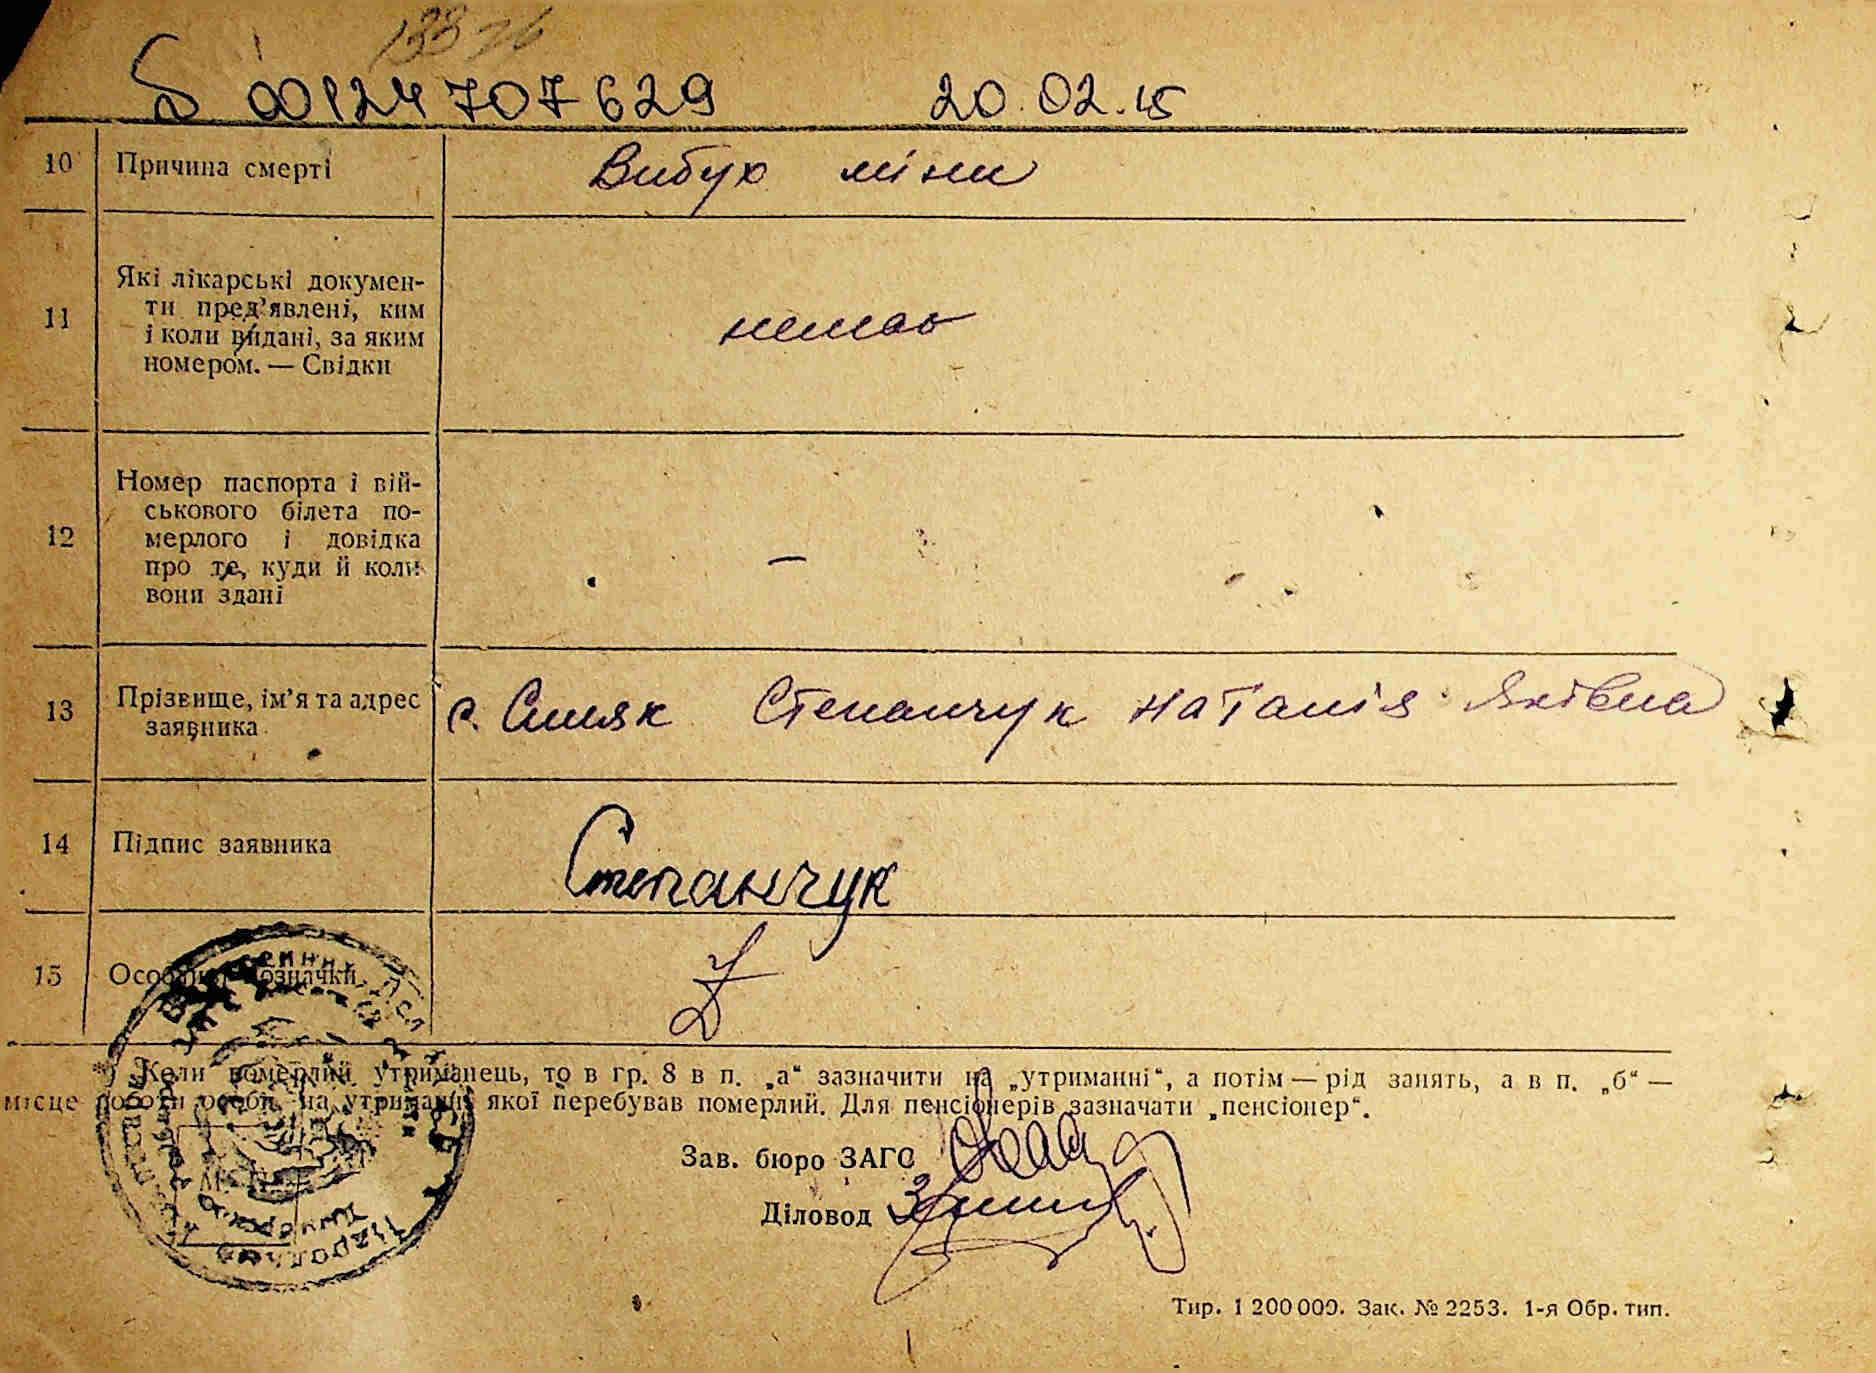 13376
00124707629 20.02.15
10 Причина смерті Вибух міни
11 Які лікарські докумен-
ти пред’явлені, ким
і коли видані, за яким
номером. — Свідки
немає
12 Номер паспорта і вій-
ськового білета по-
мерлого і довідка
про те, куди й коли
вони здані
—
13 Прізвище, ім’я та адрес
заявника
с. Сшяк Степанчук Наталія Яківна
14 Підпис заявника Степанчук
15 Особливі позначки
*) Коли померлий утриманець, то в гр. 8 в п. „а“ зазначити на „утриманні“, а потім — рід занять, а в п. „б“ —
місце роботи особи, на утриманні якої перебував померлий. Для пенсіонерів зазначати „пенсіонер“.
Зав. бюро ЗАГС
Діловод
М. П.
Тир. 1 200 000. Зак. № 2253. 1-я Обр. тип.